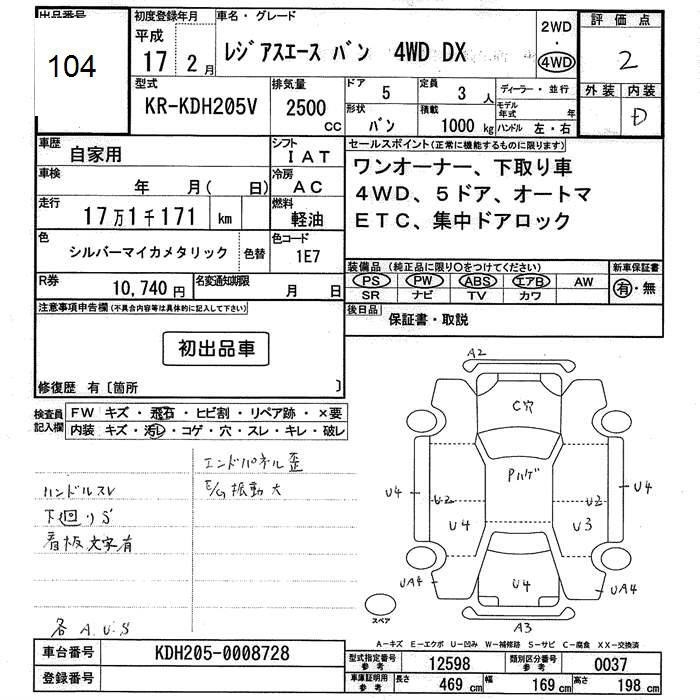 出品番号
104
初度登録年月
平成
17 2月
車名・グレード
レジアスエース バン 4WD DX
2WD
・
4WD
評価点
2
外装 内装
D
型式
KR-KDH205V
排気量
2500
CC
ドア 5
定員 3人
ディーラー・並行
モデル年式 年
形状 バン
積載 1000kg
ハンドル 左・右
車歴
自家用
シフト
IAT
車検
年 月( 日)
冷房
AC
走行
17万1千171 km
燃料
軽油
色
シルバーマイカメタリック
色替
色コード
1E7
R券
10,740円
名変通知期限
月 日
セールスポイント(正常に機能するものに限ります)
ワンオーナー、下取り車
4WD、5ドア、オートマ
ETC、集中ドアロック
装備品(純正品に限り○をつけてください)
PS PW ABS エアB AW
SR ナビ TV カワ
新車保証書
有・無
後日品
保証書・取説
注意事項申告欄(不具合内容等は具体的に記入して下さい)
初出品車
修復歴 有〔箇所 〕
検査員記入欄
FW キズ・飛石・ヒビ割・リペア跡・×要
内装 キズ・汚レ・コゲ・穴・スレ・キレ・破レ
エンドパネル歪
ハンドルスレ
E/G振動大
下廻りS
看板文字有
各A.U.S
A2
C穴
Pハゲ
U4
U2
U4
U2
U3
U4
UA4
U4
UA4
スペア
A3
A-キズ E-エクボ U-凹み W-補修跡 S-サビ C-腐食 XX-交換済
車台番号 KDH205-0008728
登録番号
型式指定番号 参考 12598
類別区分番号 参考 0037
車庫証明用 参考 長さ 469cm 幅 169cm 高さ 198cm